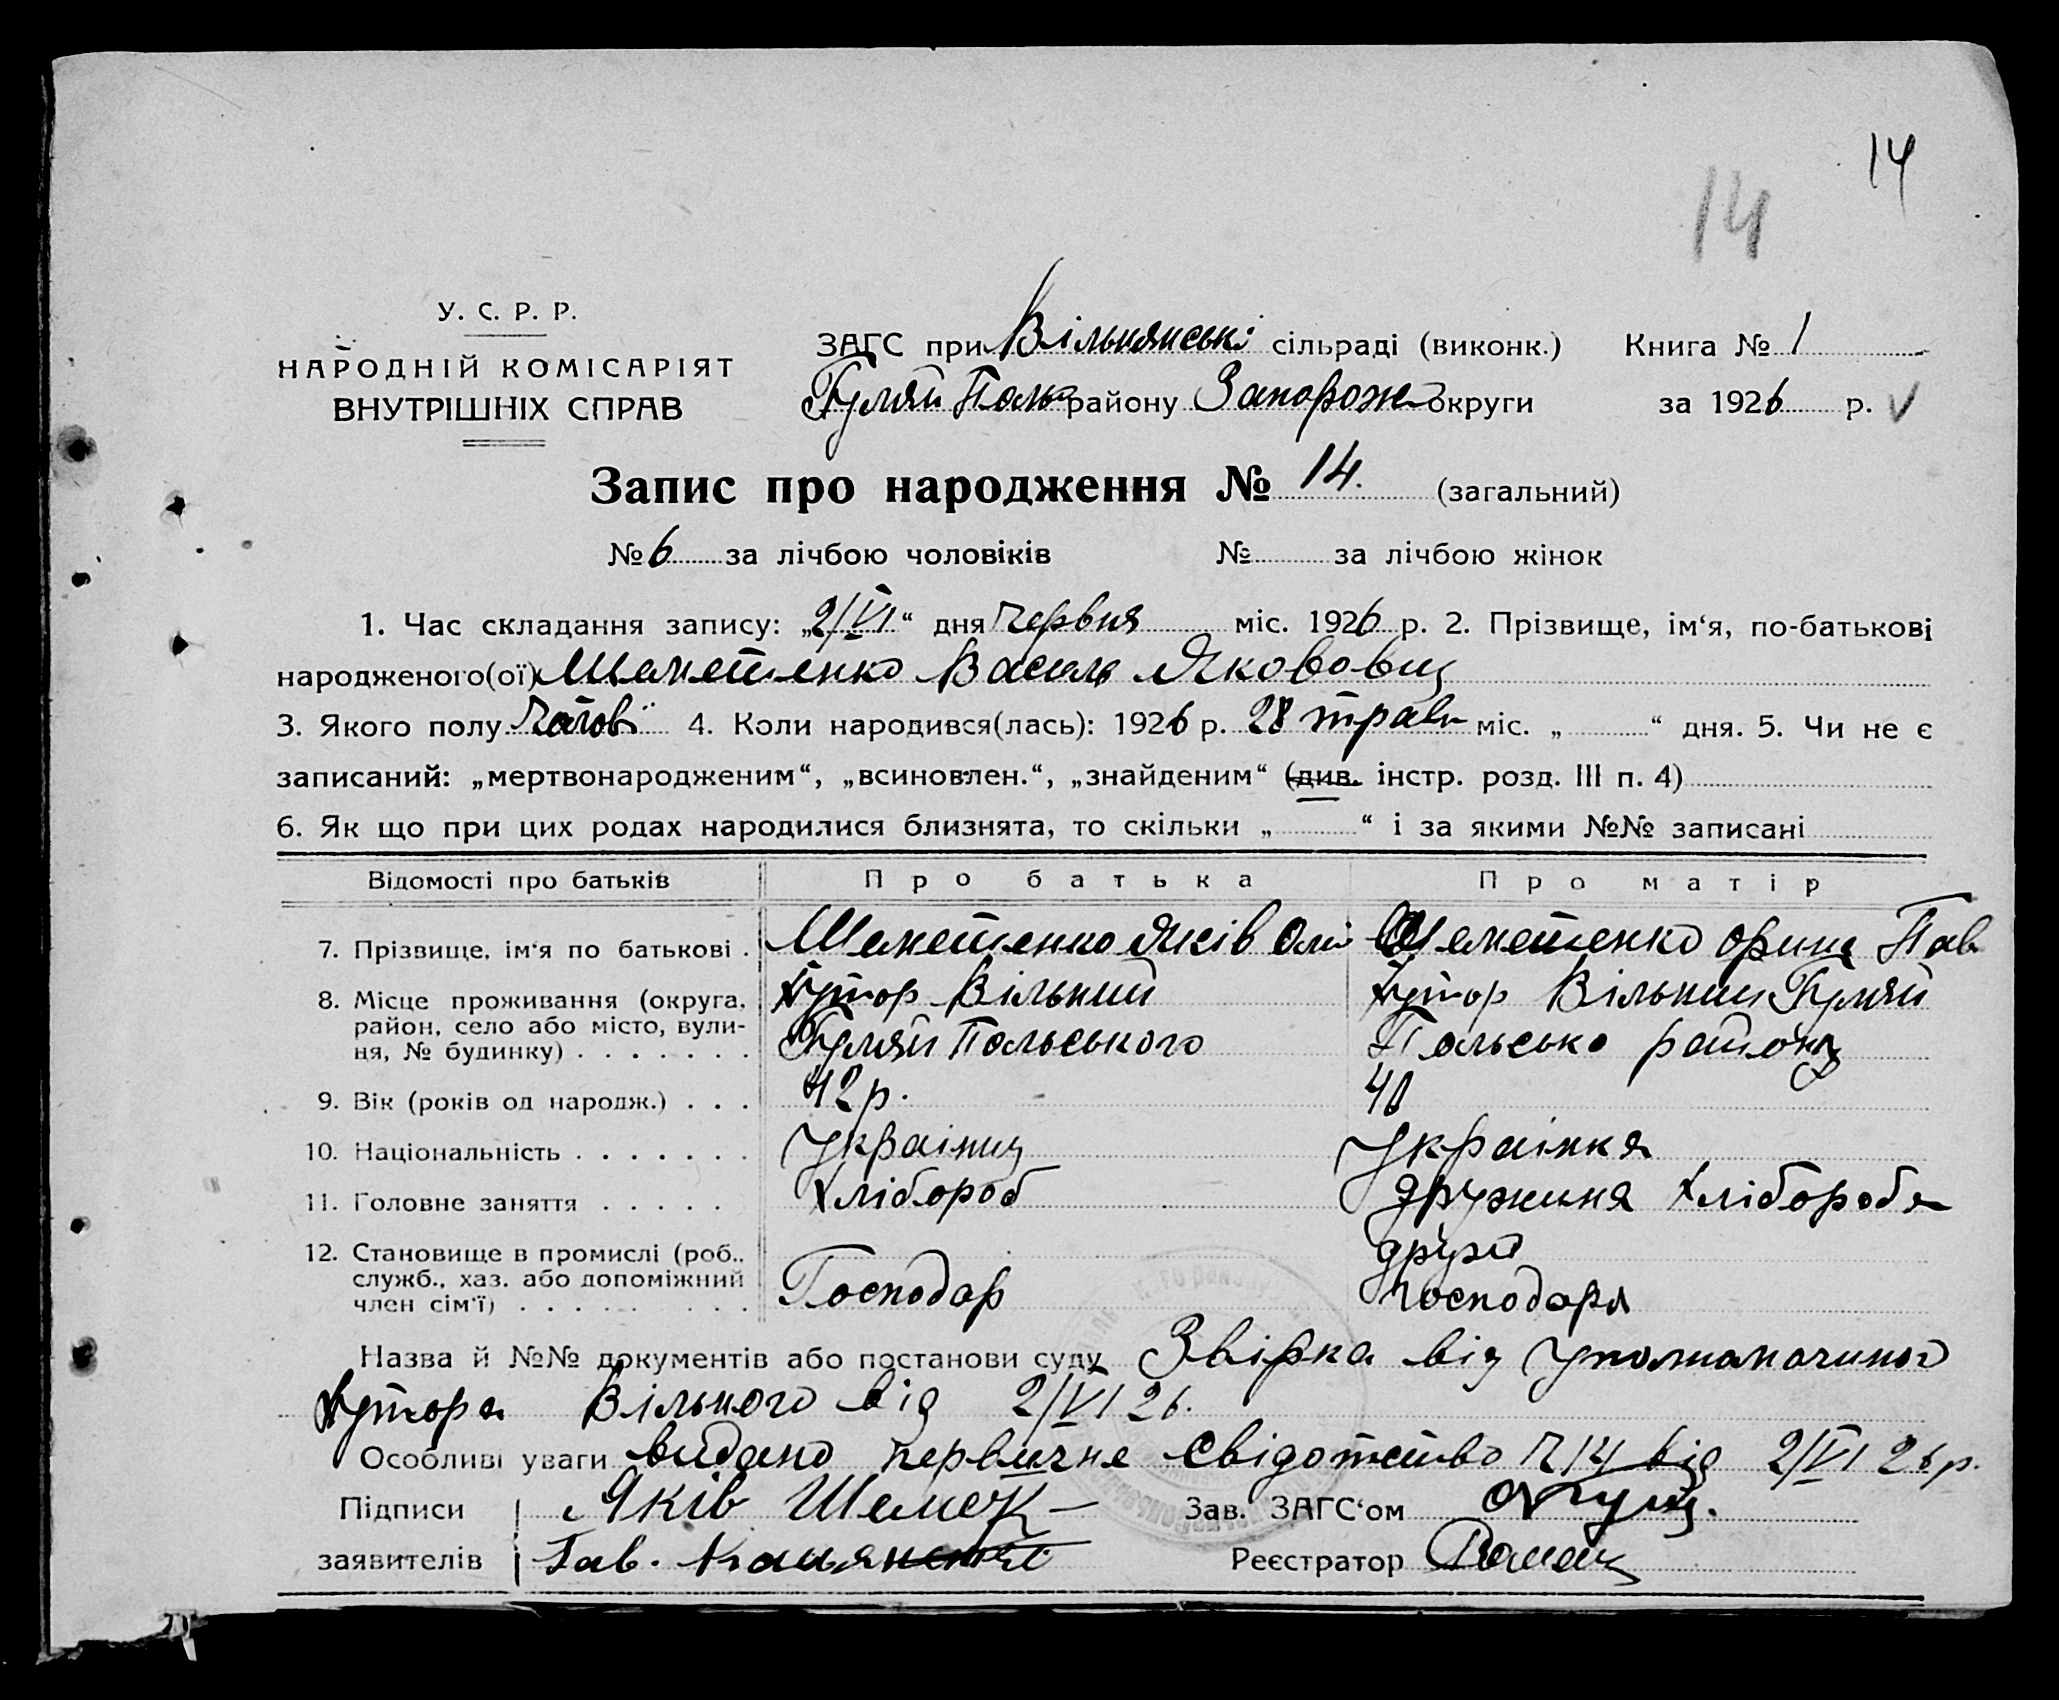 14
14
У. С. Р. Р.
НАРОДНІЙ КОМІСАРІЯТ
ВНУТРІШНІХ СПРАВ
ЗАГС при Вільнянські сільраді (виконк.) Книга № 1
Гуляй Поль району Запорож округи за 1926 р. V
Запис про народження № 14. (загальний)
№ 6 за лічбою чоловіків № за лічбою жінок
1. Час складання запису: „2/VI“ дня Червня міс. 1926 р. 2. Прізвище, ім‘я, по-батькові
народженого(ої) Шеметенко Василь Якововиц
3. Якого полу Чолові 4. Коли народився(лась): 1926 р. 28 трав міс. „ “ дня. 5. Чи не є
записаний: „мертвонародженим“, „всиновлен.“, „знайденим“ (див. інстр. розд. III п. 4)
6. Як що при цих родах народилися близнята, то скільки „ “ і за якими №№ записані
Відомості про батьків Про батька Про матір
7. Прізвище, ім‘я по батькові . Шеметенко Яків Шеметенко Орина Пав
8. Місце проживання (округа, Хутор Вільний Хутор Вільний Гуляй
район, село або місто, вули-
ня, № будинку) . . . . . . . Гуляй Польського Польсько району
9. Вік (років од народж.) . . . 42 р. 40
10. Національність . . . . . . . Украінец Украінка
11. Головне заняття . . . . . Хлібороб дружина Хлібороба
12. Становище в промислі (роб.. друж
служб., хаз. або допоміжний
член сім‘ї) . . . . . . . . Господар господаря
Назва й №№ документів або постанови суду Звірка від
Хутора Вільного від 2/VI 26.
Особливі уваги видано первичне свідотство Ч 14 від 2/VI 26 р.
Підписи Яків Шемет Зав. ЗАГС‘ом
заявителів Гав. Реєстратор